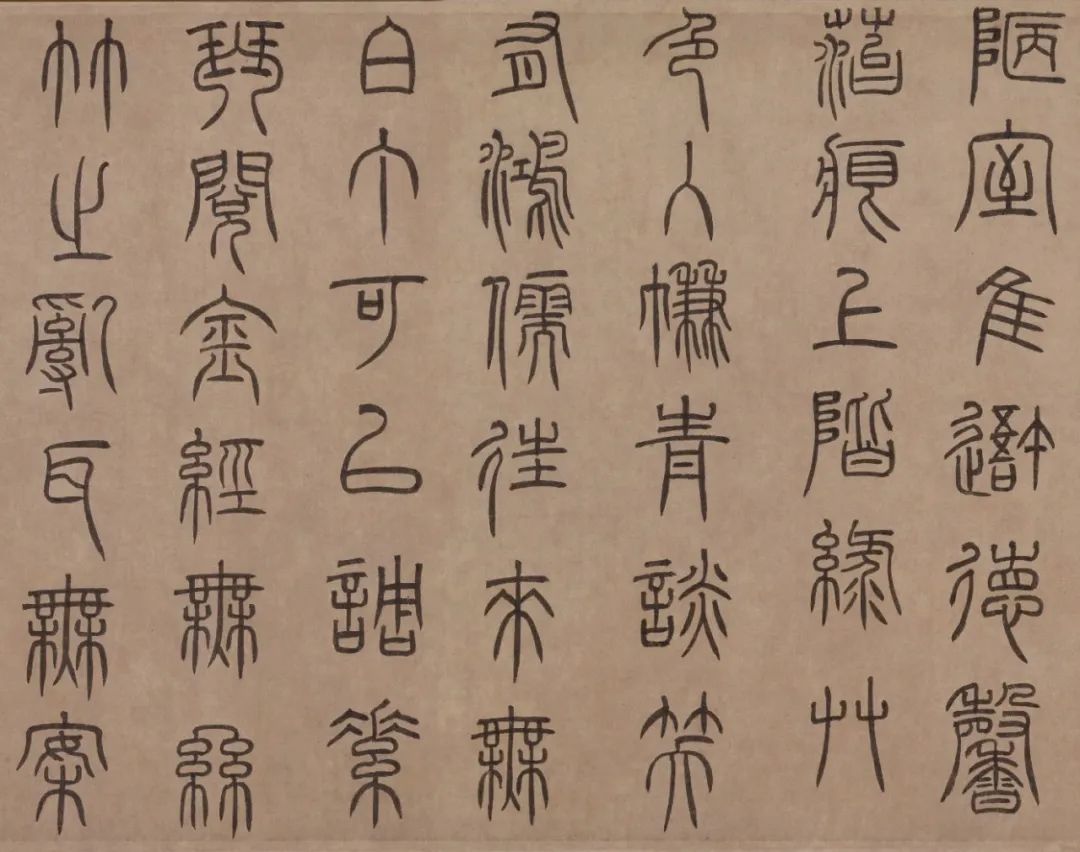 陋室隹吾德馨
菭痕上階綠艸
色入㡘青談笑
有鴻儒往來無
白丁可㠯調素
琴閱金經無絲
竹之亂耳無案